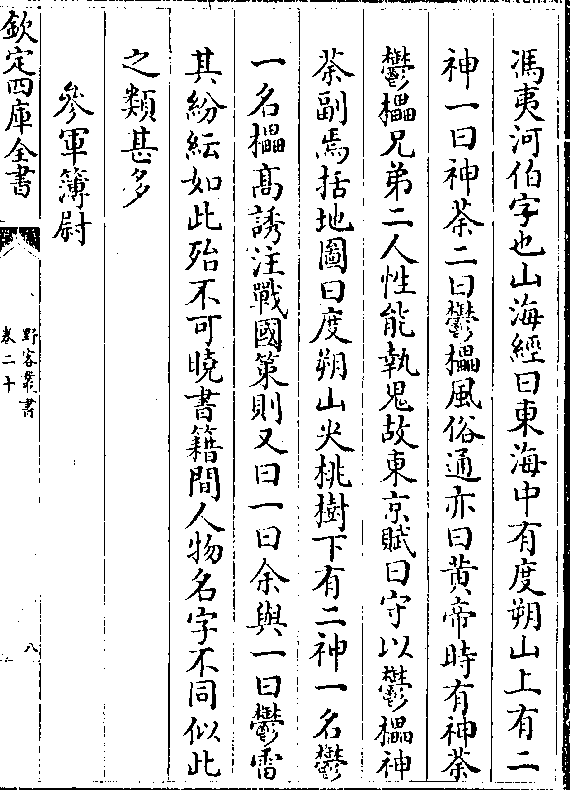 馮夷河伯字也山海經曰東海中有度朔山上有二
神一曰神荼二曰鬱櫑風俗通亦曰黄帝時有神荼
鬱櫑兄弟二人性能執鬼故東京賦曰守以鬱櫑神
荼副焉括地圖曰度朔山尖桃樹下有二神一名鬱
一名櫑高誘注戰國策則又曰一曰余與一曰鬱雷
其紛紜如此殆不可曉書籍間人物名字不同似此
之類甚多
參軍簿尉
欽定四庫全書
野客叢書
卷二十
八